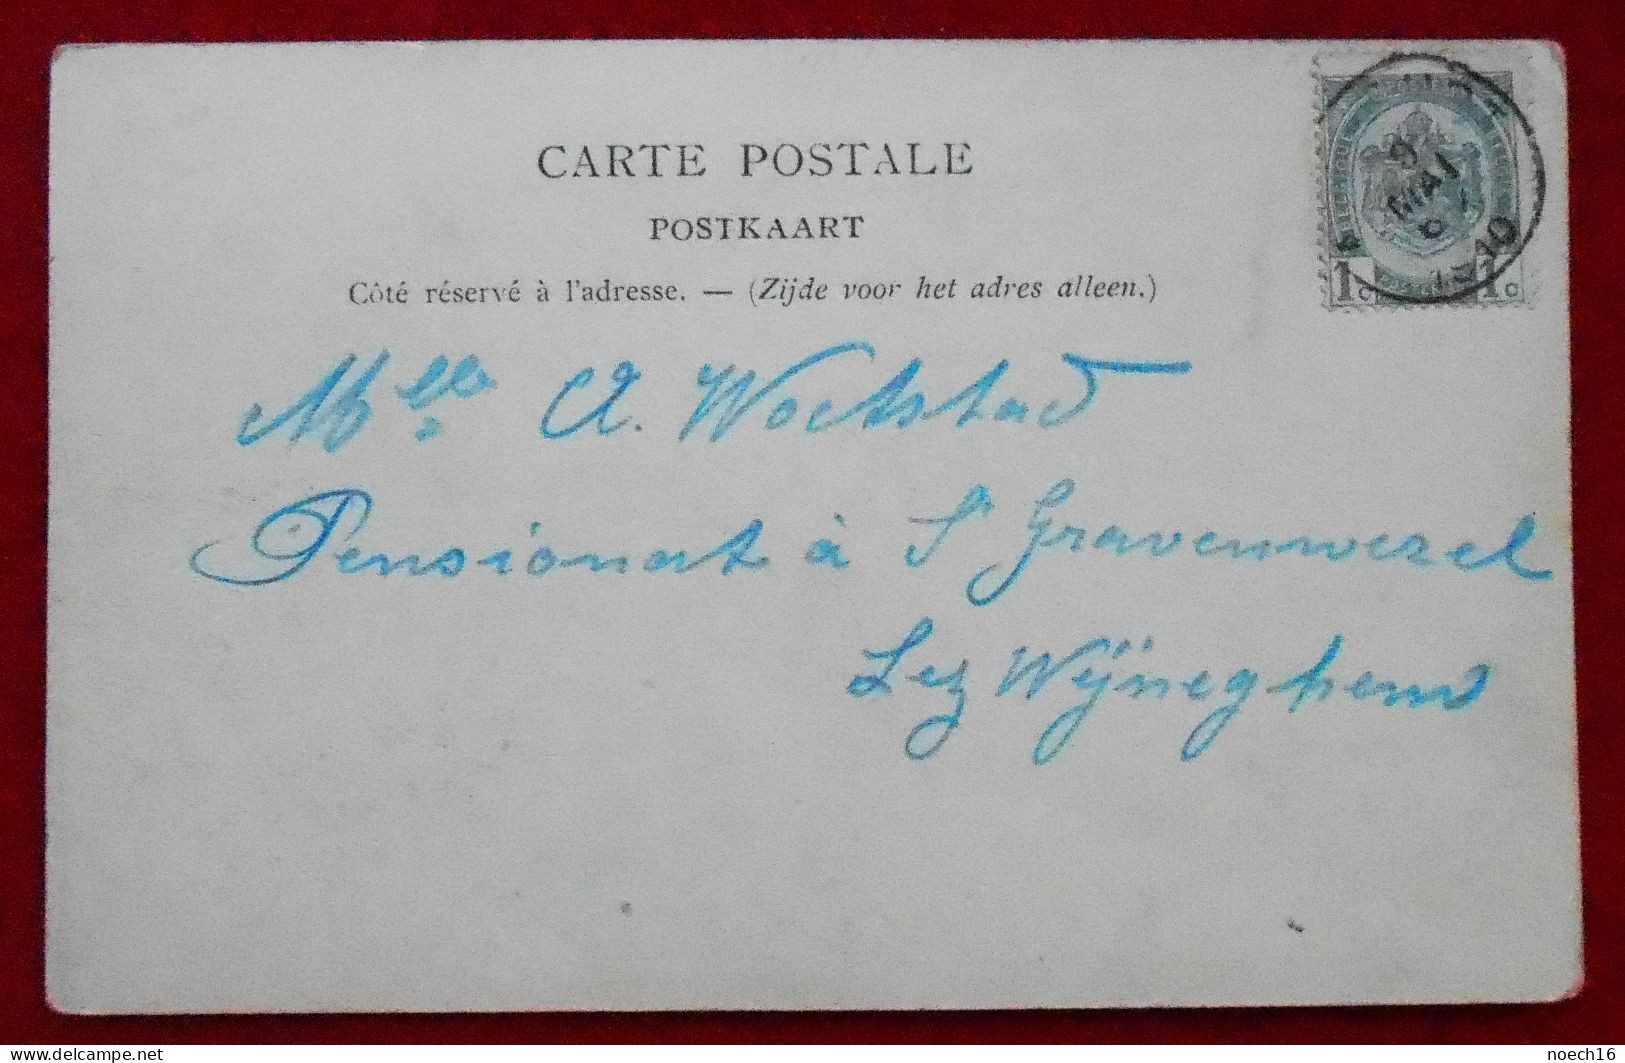 CARTE POSTALE
POSTKAART
Côté réservé à l'adresse. — (Zijde voor het adres alleen.)
1c 1c
9
MAI
10
Mlle A. Wockstad
Pensionat à S' Gravenwezel
Lez Wijneghem
delcampe.net
noech16